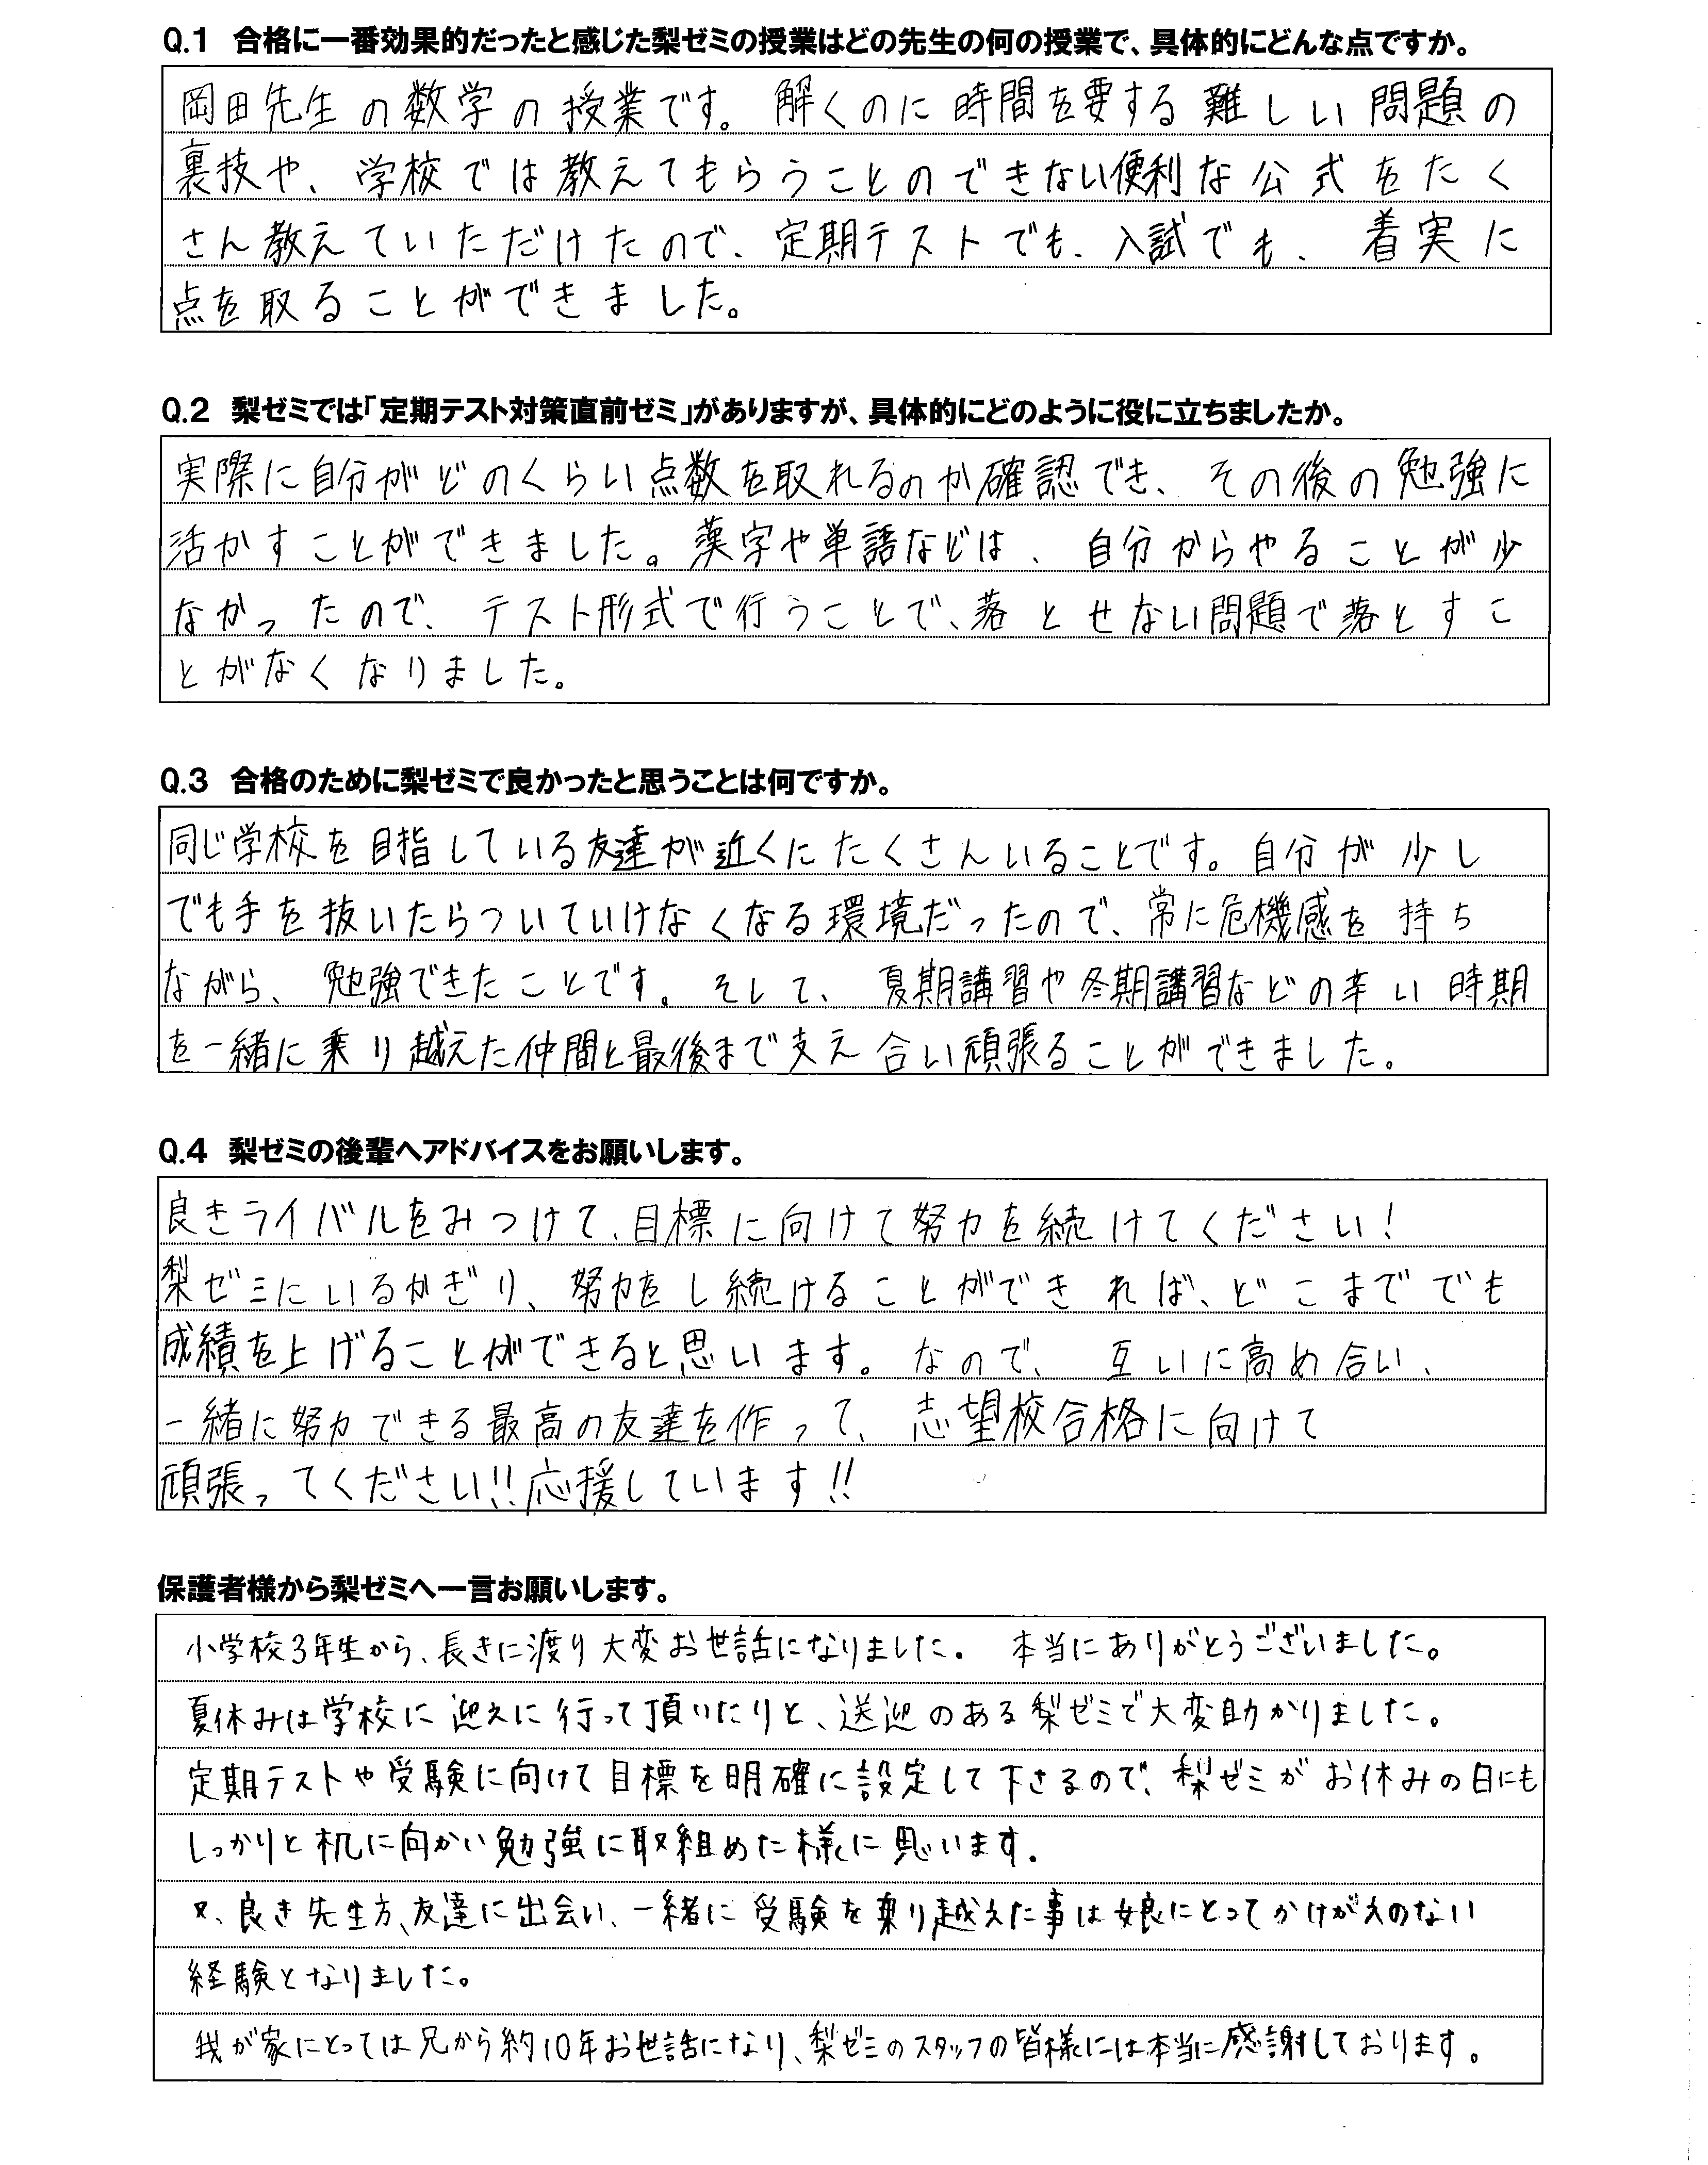 Q.1 合格に一番効果的だったと感じた梨ゼミの授業はどの先生の何の授業で、具体的にどんな点ですか。
岡田先生の数学の授業です。解くのに時間を要する難しい問題の
裏技や、学校では教えてもらうことのできない便利な公式をたく
さん教えていただけたので、定期テストでも、入試でも、着実に
点を取ることができました。
Q.2 梨ゼミでは「定期テスト対策直前ゼミ」がありますが、具体的にどのように役に立ちましたか。
実際に自分がどのくらい点数を取れるのか確認でき、その後の勉強に
活かすことができました。漢字や単語などは、自分からやることが少
なかったので、テスト形式で行うことで、落とせない問題で落とすこ
とがなくなりました。
Q.3 合格のために梨ゼミで良かったと思うことは何ですか。
同じ学校を目指している友達が近くにたくさんいることです。自分が少し
でも手を抜いたらついていけなくなる環境だったので、常に危機感を持ち
ながら、勉強できたことです。そして、夏期講習や冬期講習などの辛い時期
を一緒に乗り越えた仲間と最後まで支え合い頑張ることができました。
Q.4 梨ゼミの後輩へアドバイスをお願いします。
良きライバルをみつけて、目標に向けて努力を続けてください!
梨ゼミにいるかぎり、努力をし続けることができれば、どこまででも
成績を上げることができると思います。なので、互いに高め合い、
一緒に努力できる最高の友達を作って、志望校合格に向けて
頑張ってください!!応援しています!!
保護者様から梨ゼミへ一言お願いします。
小学校3年生から、長きに渡り大変お世話になりました。本当にありがとうございました。
夏休みは学校に迎えに行って頂いたりと、送迎のある梨ゼミで大変助かりました。
定期テストや受験に向けて目標を明確に設定して下さるので、梨ゼミがお休みの日にも
しっかりと机に向かい勉強に取組めた様に思います。
又、良き先生方、友達に出会い、一緒に受験を乗り越えた事は娘にとってかけがえのない
経験となりました。
我が家にとっては兄から約10年お世話になり、梨ゼミのスタッフの皆様には本当に感謝しております。